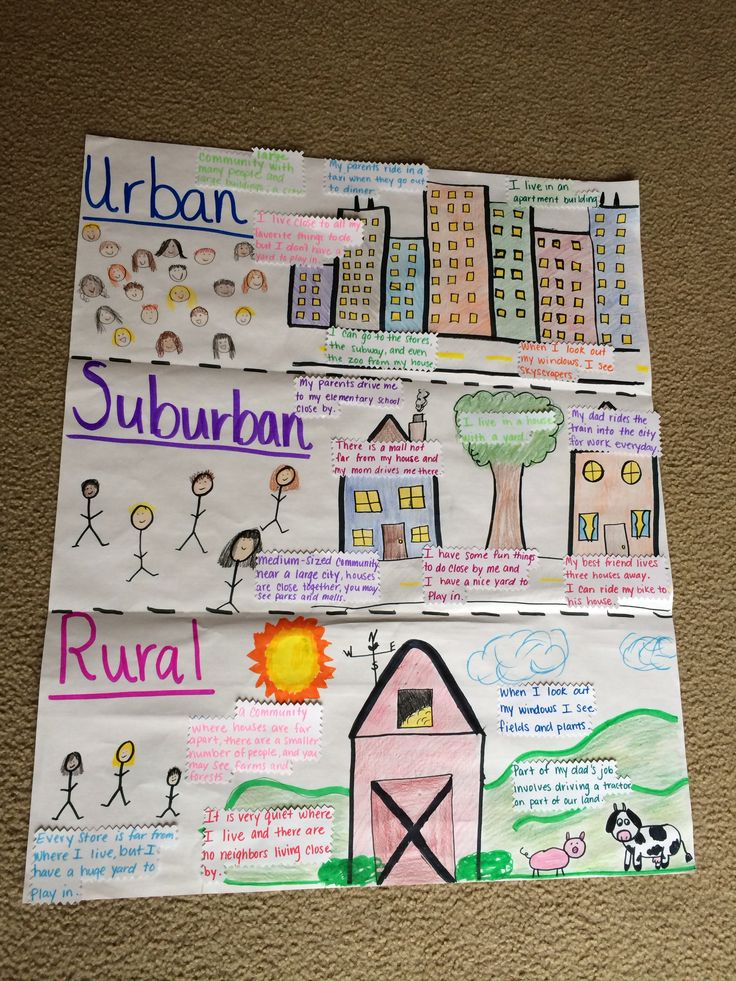 Urban
large
community with
many people and
large buildings, a city
My parents ride in a
taxi when they go out
to dinner.
I live in an
apartment building
I live close to all my
favorite things to do,
but I don't have a
yard to play in.
I can go to the stores,
the subway, and even
the zoo from my house
When I look out
my windows, I see
skyscrapers.
Suburban
My parents drive me
to my elementary school
close by.
There is a mall not
far from my house and
my mom drives me there.
I live in a house
with a yard.
My dad rides the
train into the city
for work everyday
Medium-sized community
near a large city, houses
are close together, you may
see parks and malls.
I have some fun things
to do close by me and
I have a nice yard to
Play in.
My best friend lives
three houses away.
I can ride my bike to
his house.
Rural
N
W E
S
a community
where houses are far
apart, there are a smaller
number of people, and you
may see farms and
forests.
When I look out
my windows I see
fields and plants.
Part of my dad's job
involves driving a tractor
on part of our land.
It is very quiet where
I live and there are
no neighbors living close
by.
Every store is far from
where I live, but I
have a huge yard to
Play in.